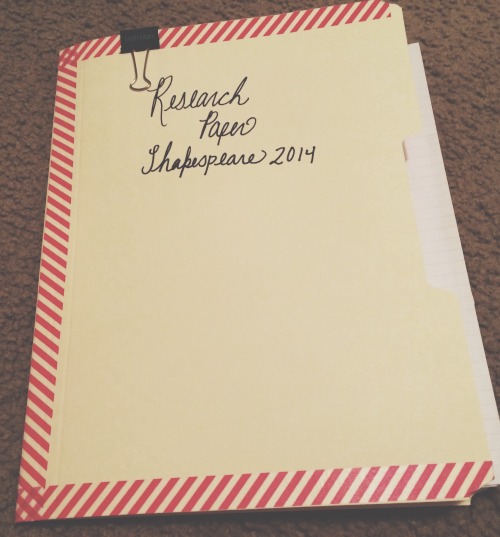 Research
Paper
Shakespeare 2014